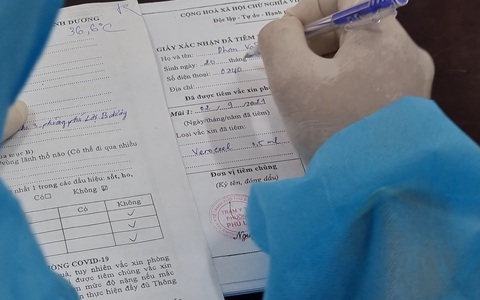 NH DƯƠNG
36,6°C
phường phú Lợi, B.dương
mục B)
vùng lãnh thổ nào (Có thể đi qua nhiều
nhất 1 trong các dấu hiệu: sốt, ho,
Có☐ Không ☑
Có Không
✓
✓
✓
ÒNG COVID-19
tuy nhiên vắc xin phòng
được tiêm chủng vắc xin
m mức độ nặng nếu mắc
thực hiện đầy đủ Thông
CỘNG HOÀ XÃ HỘI CHỦ NGHĨA V
Độc lập - Tự do - Hạnh
GIẤY XÁC NHẬN ĐÃ TIÊM
Họ và tên: Phan Vă
Sinh ngày: 20 tháng
Số điện thoại: 0240
Địa chỉ:
Đã được tiêm vắc xin phò
Mũi 1: 9/2021
(Ngày/tháng/năm đã tiêm)
Loại vắc xin đã tiêm:
Verocell 0,5ml
Đơn vị tiêm chủng
(Ký tên, đóng dấu)
TRẠM Y T
PHÚ L